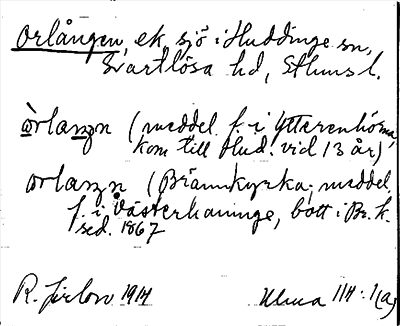 Orlången, ek. sjö i Huddinge sn,
Svartlösa hd, Sthms l.
òrlaŋŋn (meddel. f. i Ytterenhörna,
kom till Hud. vid 13 år)
orlaŋŋn (Brännkyrka; meddel.
f. i Västerhaninge, bott i Br. k.
sed. 1867
R. Jirlow 1914
Ulma 114:1(a)